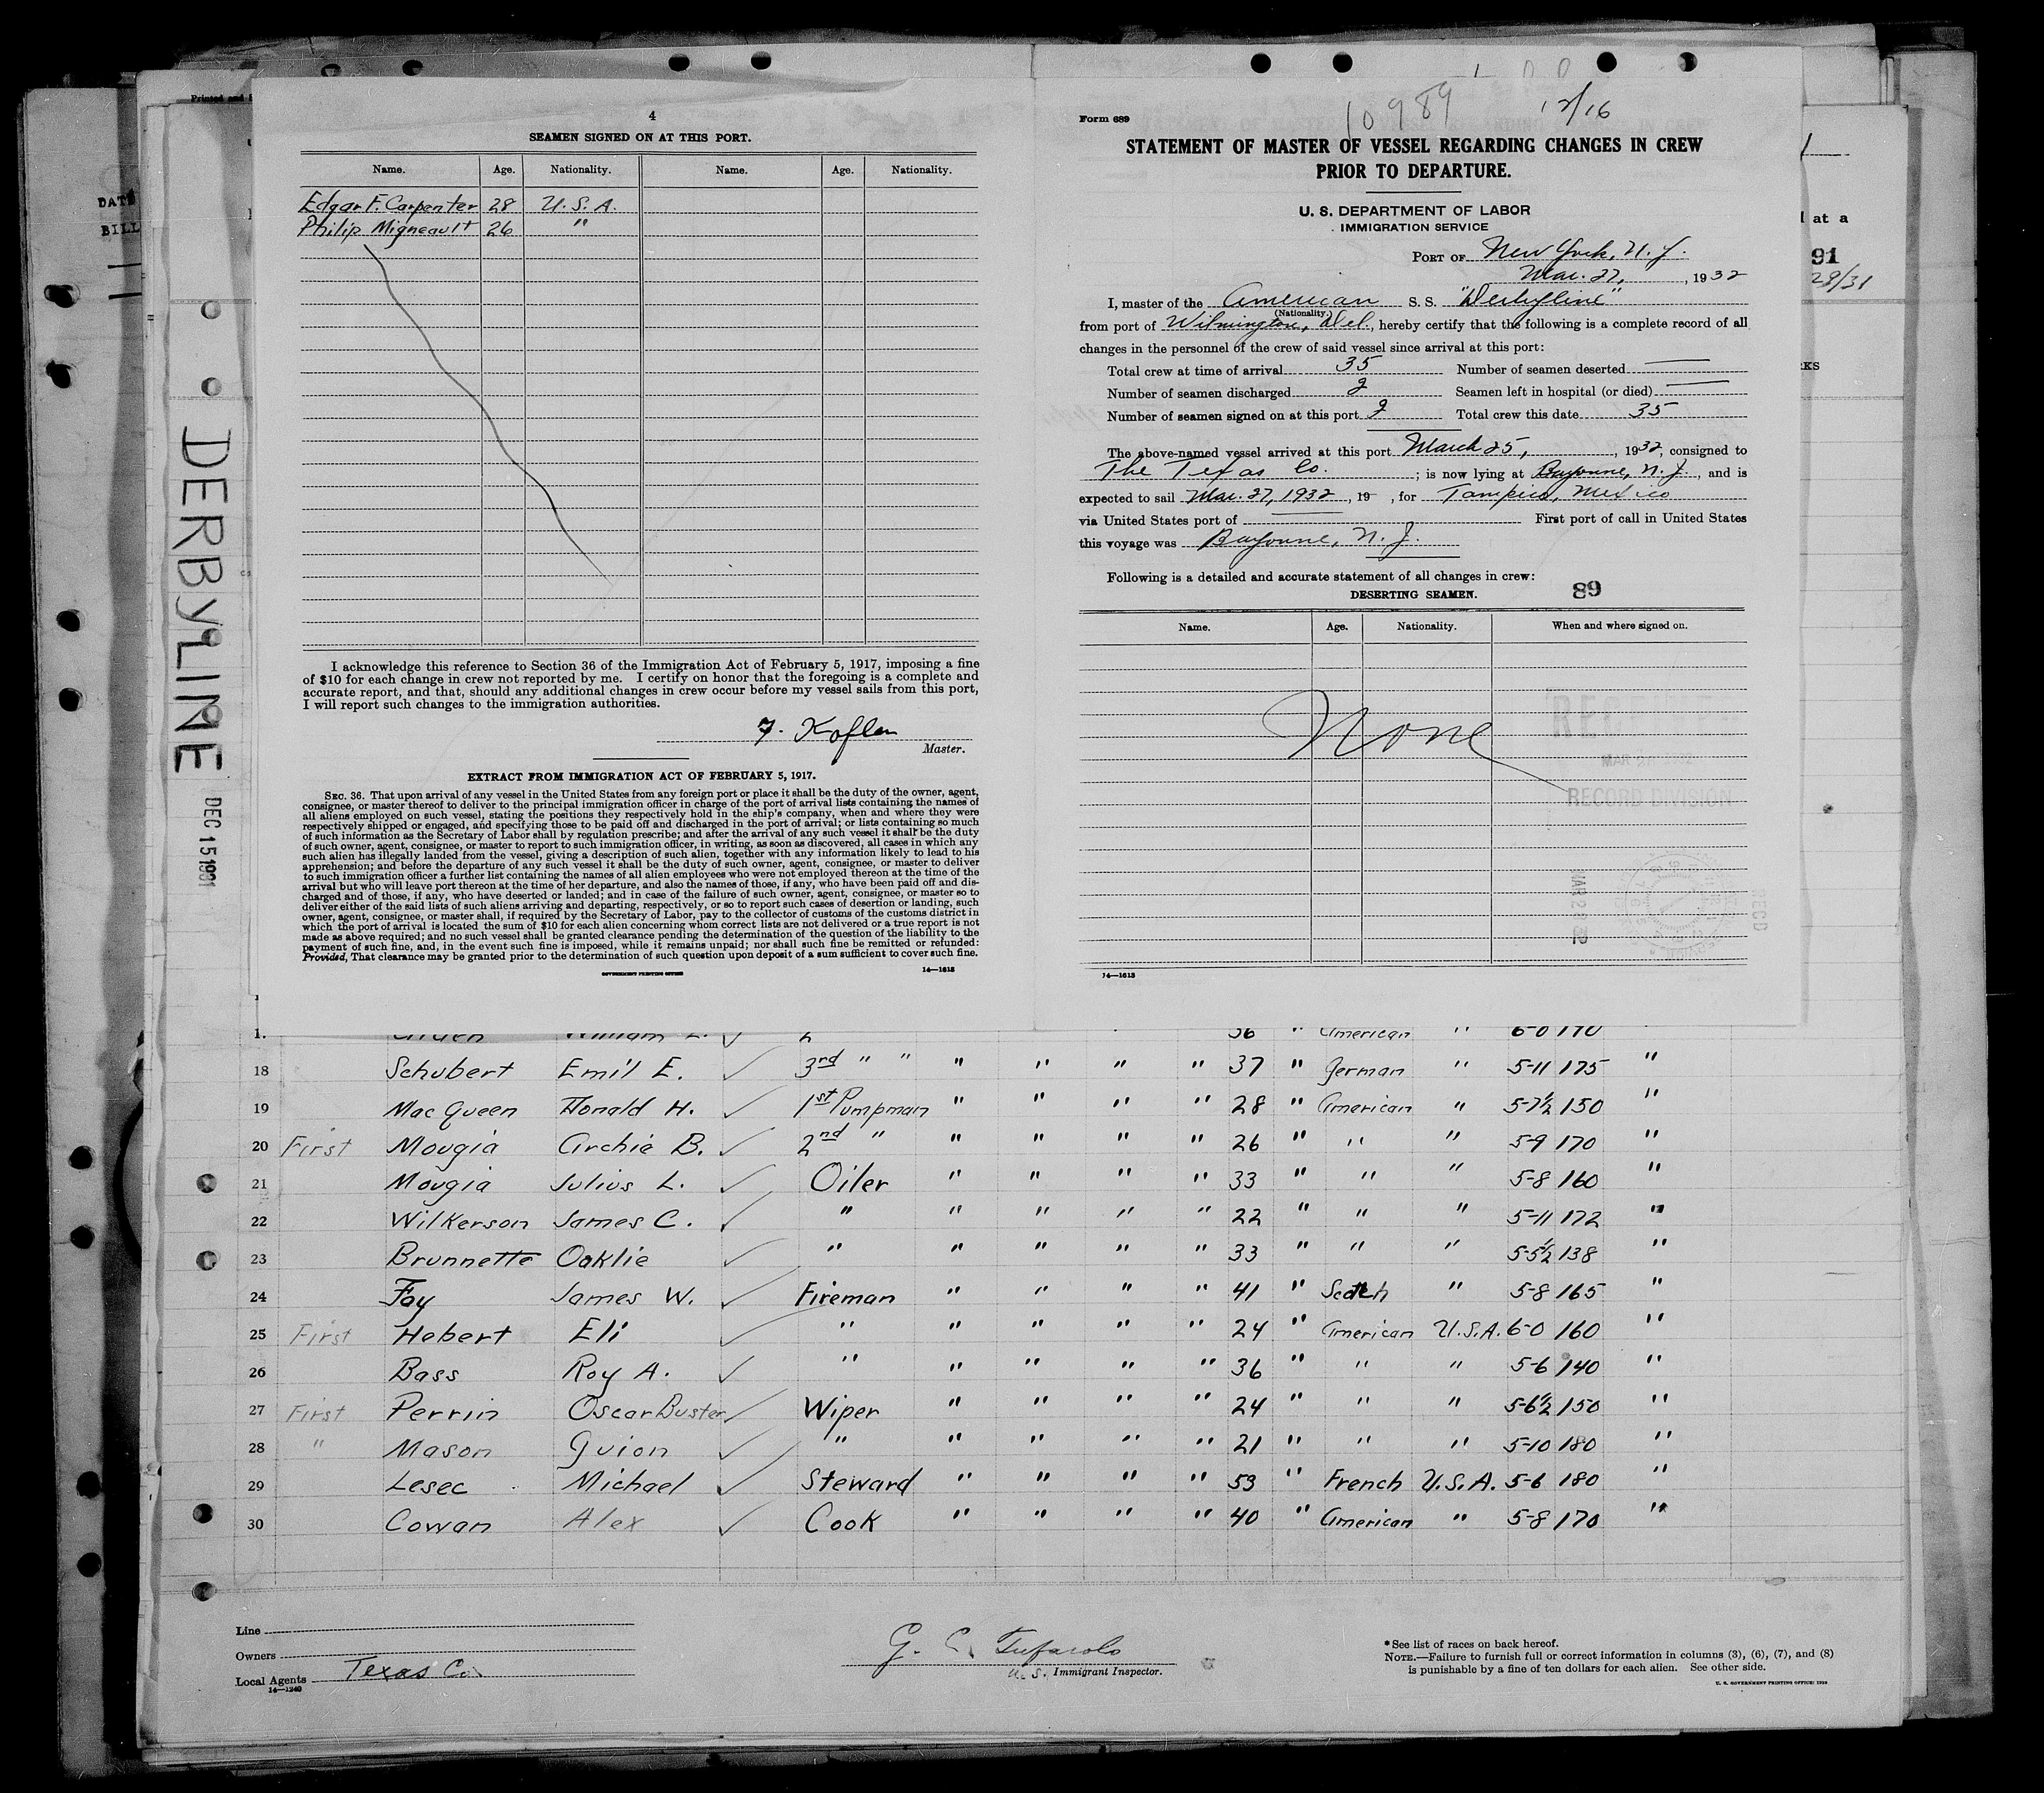 Printed and
DATE
BILL
DERBYLINE
DEC 15 1931
4
SEAMEN SIGNED ON AT THIS PORT.
Name. Age. Nationality. Name. Age. Nationality.
Edgar F. Carpenter 28 U.S.A.
Philip Migneault 26 "
I acknowledge this reference to Section 36 of the Immigration Act of February 5, 1917, imposing a fine
of $10 for each change in crew not reported by me. I certify on honor that the foregoing is a complete and
accurate report, and that, should any additional changes in crew occur before my vessel sails from this port,
I will report such changes to the immigration authorities.
Master.
EXTRACT FROM IMMIGRATION ACT OF FEBRUARY 5, 1917.
SEC. 36. That upon arrival of any vessel in the United States from any foreign port or place it shall be the duty of the owner, agent,
consignee, or master thereof to deliver to the principal immigration officer in charge of the port of arrival lists containing the names of
all aliens employed on such vessel, stating the positions they respectively hold in the ship's company, when and where they were
respectively shipped or engaged, and specifying those to be paid off and discharged in the port of arrival; or lists containing so much
of such information as the Secretary of Labor shall by regulation prescribe; and after the arrival of any such vessel it shall be the duty
of such owner, agent, consignee, or master to report to such immigration officer, in writing, as soon as discovered, all cases in which any
such alien has illegally landed from the vessel, giving a description of such alien, together with any information likely to lead to his
apprehension; and before the departure of any such vessel it shall be the duty of such owner, agent, consignee, or master to deliver
to such immigration officer a further list containing the names of all alien employees who were not employed thereon at the time of the
arrival but who will leave port thereon at the time of her departure, and also the names of those, if any, who have been paid off and dis-
charged and of those, if any, who have deserted or landed; and in case of the failure of such owner, agent, consignee, or master so to
deliver either of the said lists of such aliens arriving and departing, respectively, or so to report such cases of desertion or landing, such
owner, agent, consignee, or master shall, if required by the Secretary of Labor, pay to the collector of customs of the customs district in
which the port of arrival is located the sum of $10 for each alien concerning whom correct lists are not delivered or a true report is not
made as above required; and no such vessel shall be granted clearance pending the determination of the question of the liability to the
payment of such fine, and, in the event such fine is imposed, while it remains unpaid; nor shall such fine be remitted or refunded:
Provided, That clearance may be granted prior to the determination of such question upon deposit of a sum sufficient to cover such fine.
GOVERNMENT PRINTING OFFICE 14—1613
10989 12/16
Form 689
STATEMENT OF MASTER OF VESSEL REGARDING CHANGES IN CREW
PRIOR TO DEPARTURE.
U. S. DEPARTMENT OF LABOR
IMMIGRATION SERVICE
PORT OF New York, N.Y.
Mar. 27, , 1932
I, master of the American S. S. "Derbyline"
(Nationality.)
from port of Wilmington, Del., hereby certify that the following is a complete record of all
changes in the personnel of the crew of said vessel since arrival at this port:
Total crew at time of arrival 35 Number of seamen deserted —
Number of seamen discharged 2 Seamen left in hospital (or died) —
Number of seamen signed on at this port 2 Total crew this date 35
The above-named vessel arrived at this port March 25, , 1932, consigned to
The Texas Co. ; is now lying at Bayonne, N.J., and is
expected to sail Mar. 27, 1932, 19 , for Tampico, Mexico
via United States port of — First port of call in United States
this voyage was Bayonne, N.J.
Following is a detailed and accurate statement of all changes in crew:
DESERTING SEAMEN. 89
Name. Age. Nationality. When and where signed on.
None
RECORD DIVISION
RECD
14—1613
at a
91
28/31
KS
William L. 36 " American " 6-0 170
18 Schubert Emil E. 3rd " " " " " " 37 " German " 5-11 175 "
19 MacQueen Donald H. 1st Pumpman " " " " 28 " American " 5-7½ 150 "
20 First Mougia Archie B. 2nd " " " " " 26 " " " 5-9 170 "
21 Mougia Julius L. Oiler " " " " 33 " " " 5-8 160 "
22 Wilkerson James C. " " " " " 22 " " " 5-11 172 "
23 Brunnette Oaklie " " " " " 33 " " " 5-5½ 138 "
24 Foy James W. Fireman " " " " 41 " Scotch " 5-8 165 "
25 First Hebert Eli " " " " " 24 " American U.S.A. 6-0 160 "
26 Bass Roy A. " " " " " 36 " " " 5-6 140 "
27 First Perrin Oscar Buster Wiper " " " " 24 " " " 5-6½ 150 "
28 " Mason Guion " " " " " 21 " " " 5-10 180 "
29 Lesec Michael Steward " " " " 53 " French U.S.A. 5-6 180 "
30 Cowan Alex Cook " " " " 40 " American " 5-8 170 "
Line
Owners
Local Agents Texas Co.
14—1240
U. S. Immigrant Inspector.
*See list of races on back hereof.
NOTE.—Failure to furnish full or correct information in columns (3), (6), (7), and (8)
is punishable by a fine of ten dollars for each alien. See other side.
U. S. GOVERNMENT PRINTING OFFICE: 1928